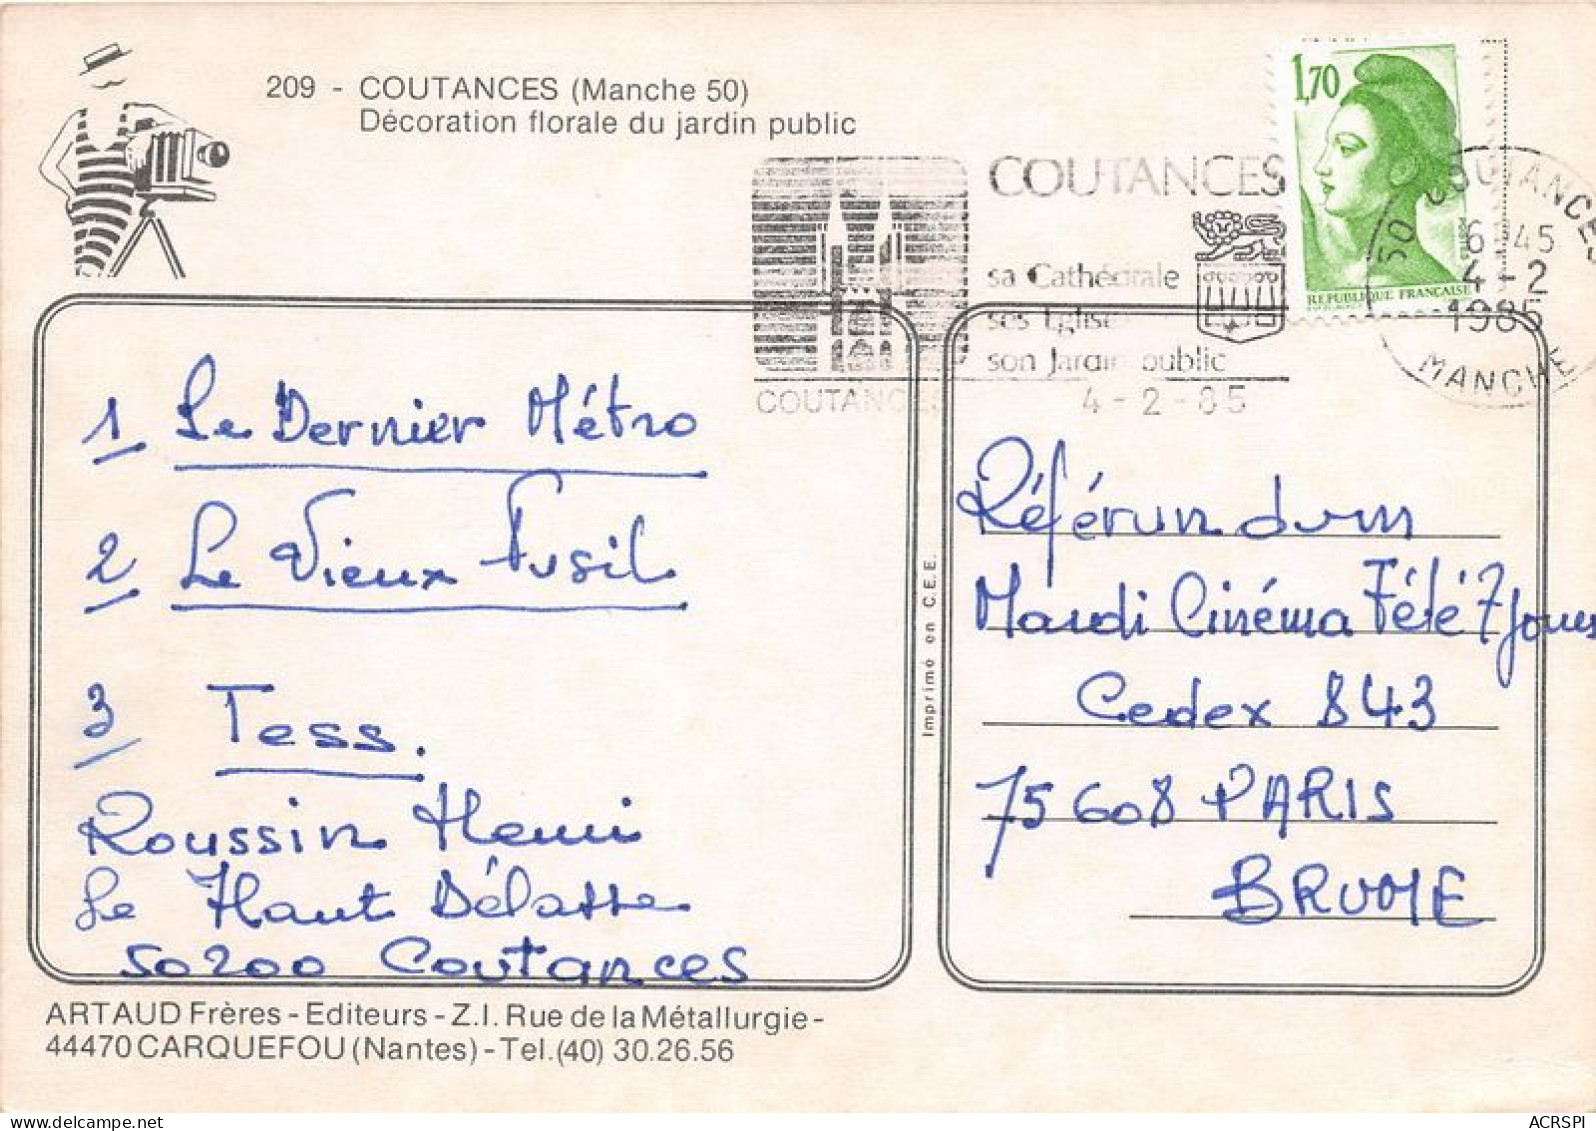 209 - COUTANCES (Manche 50)
Décoration florale du jardin public
1,70
REPUBLIQUE FRANCAISE
COUTANCES
sa Cathédrale
ses Eglises
son Jardin public
COUTANCES
4-2-85
50 COUTANCES
16 H 45
4-2
1985
MANCHE
1 Le Dernier Métro
2 Le Vieux Fusil
3 Tess.
Roussin Henri
Le Haut Délasse
50200 Coutances
Imprimé en C.E.E.
Référundum
Mardi Cinéma Télé 7 jours
Cedex 843
75608 PARIS
BRUNE
ARTAUD Frères - Editeurs - Z.I. Rue de la Métallurgie -
44470 CARQUEFOU (Nantes) - Tel. (40) 30.26.56
ACRSPI